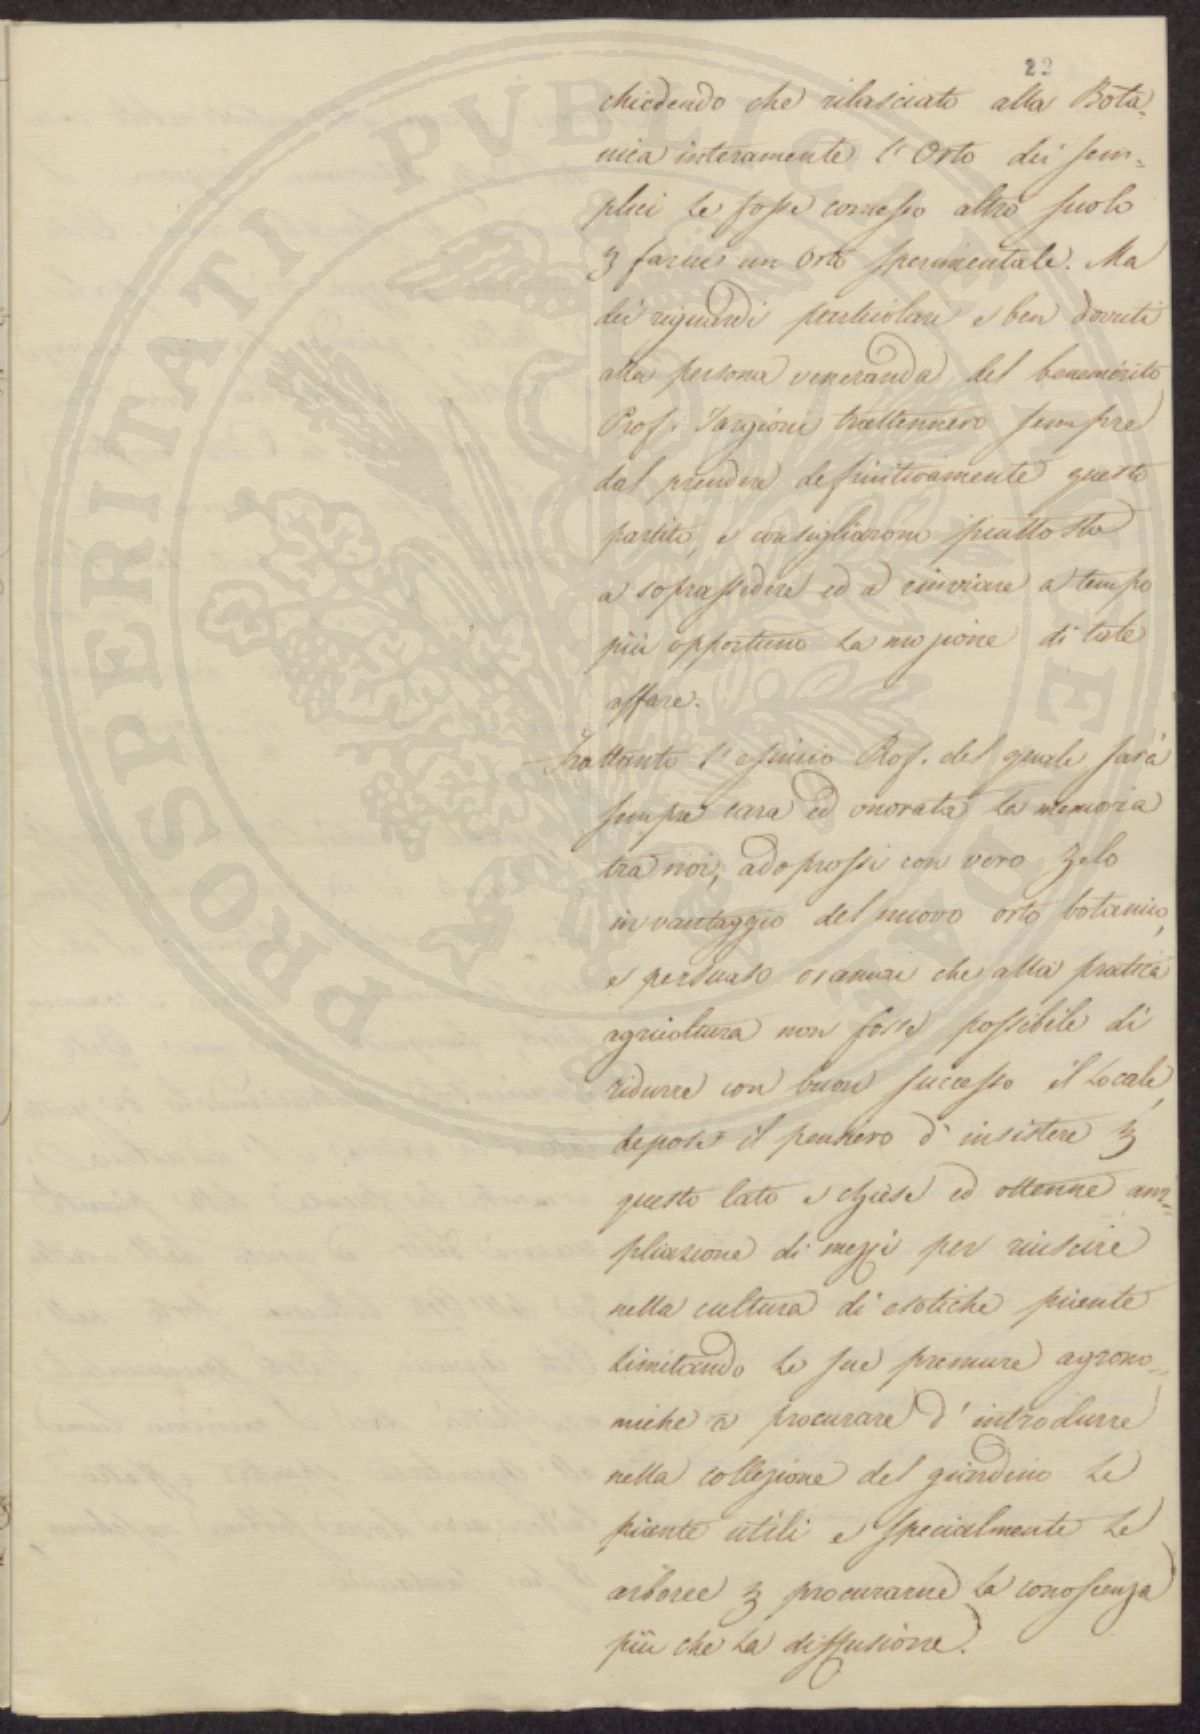 22
chiedendo che rilasciato alla Bota-
nica interamente l'Orto dei Sem-
plici le fosse concesso altro suolo
p farne un Orto sperimentale. Ma
dei riguardi particolari e ben dovuti
alla persona veneranda del benemerito
Prof. Targioni trattennero sempre
dal prendere definitivamente questo
partito, e consigliarono piuttosto
a soprassedere ed a rinviare a tempo
più opportuno la mozione di tale
affare.
Frattanto l'esimio Prof. del quale sarà
sempre cara ed onorata la memoria
tra noi, adoprossi con vero zelo
in vantaggio del nuovo orto botanico,
e persuaso oramai che alla pratica
agricoltura non fosse possibile di
ridurre con buon successo il locale,
depose il pensiero d'insistere p
questo lato e chiese ed ottenne am-
pliazione di mezzi per riuscire
nella cultura di esotiche piante
limitando le sue premure agrono-
miche a procurare d'introdurre
nella collezione del giardino le
piante utili e specialmente le
arboree p procurarne la conoscenza
più che la diffusione.
PROSPERITATI PUBLICAE AUGENDAE